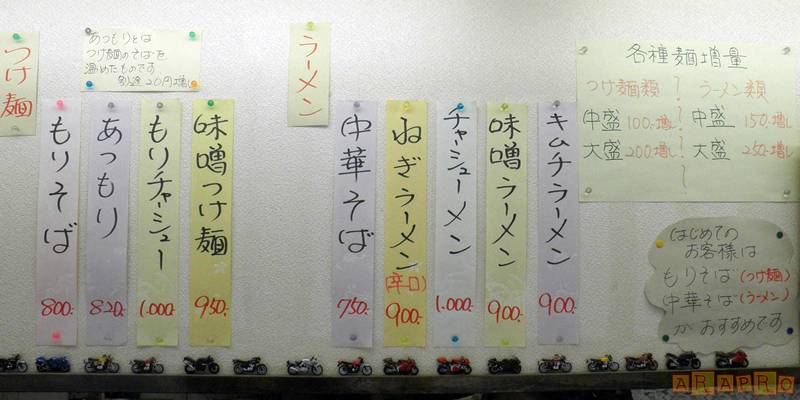 つけ麺
あつもりとは
つけ麺のそばを
温めたものです
別途20円増し
もりそば
800-
あつもり
820-
もりチャーシュー
1.000-
味噌つけ麺
950-
ラーメン
中華そば
750-
ねぎラーメン
(辛口)
900-
チャーシューメン
1.000-
味噌ラーメン
900-
キムチラーメン
900-
各種麺増量
つけ麺類 ラーメン類
中盛 100-増し 中盛 150-増し
大盛 200増し 大盛 250-増し
はじめての
お客様は
もりそば(つけ麺)
中華そば(ラーメン)
がおすすめです
ARAPRO